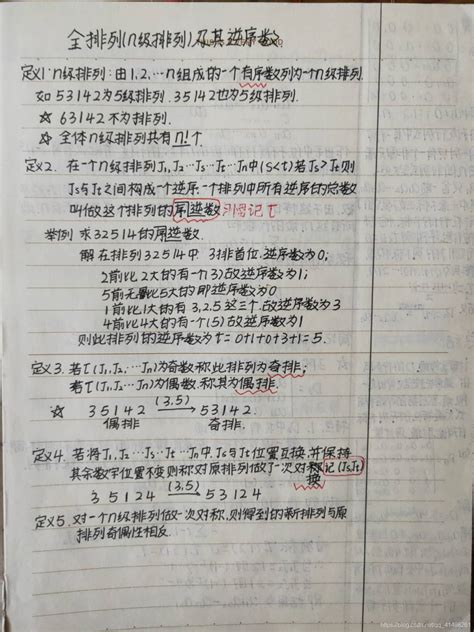 全排列(n级排列)及其逆序数
定义1:n级排列:由1,2,…n组成的一个有序数列为一个n级排列.
如53142为5级排列.35142也为5级排列.
☆ 63142不为排列.
☆ 全体n级排列共有n!个
定义2. 在一个n级排列J₁,J₂…Js…Jt…Jn中(s<t)若Js>Jt则
Js与Jt之间构成一个逆序.一个排列中所有逆序的总数
叫做这个排列的逆序数 记 τ
举例 求32514的逆序数.
解 在排列32514中 3排首位,逆序数为0;
2前比2大的有一个(3)故逆序数为1;
5前无比5大的 即逆序数为0
1前比1大的有3,2,5这三个.故逆序数为3
4前比4大的有一个(5)故逆序数为1
则此排列的逆序数为τ=0+1+0+3+1=5.
定义3. 若τ(J₁,J₂,…Jn)为奇数称此排列为奇排;
若τ(J₁,J₂…Jn)为偶数 称其为偶排.
☆ 35142 (3,5)→ 53142.
偶排 奇排.
定义4. 若将J₁,J₂…Js…Jt…Jn中,Js与Jt位置互换,并保持
其余数字位置不变则称对原排列做了一次对换 记(Js,Jt)
35124 (3,5)→ 53124
定义5.对一个n级排列做一次对称,则得到的新排列与原
排列奇偶性相反.